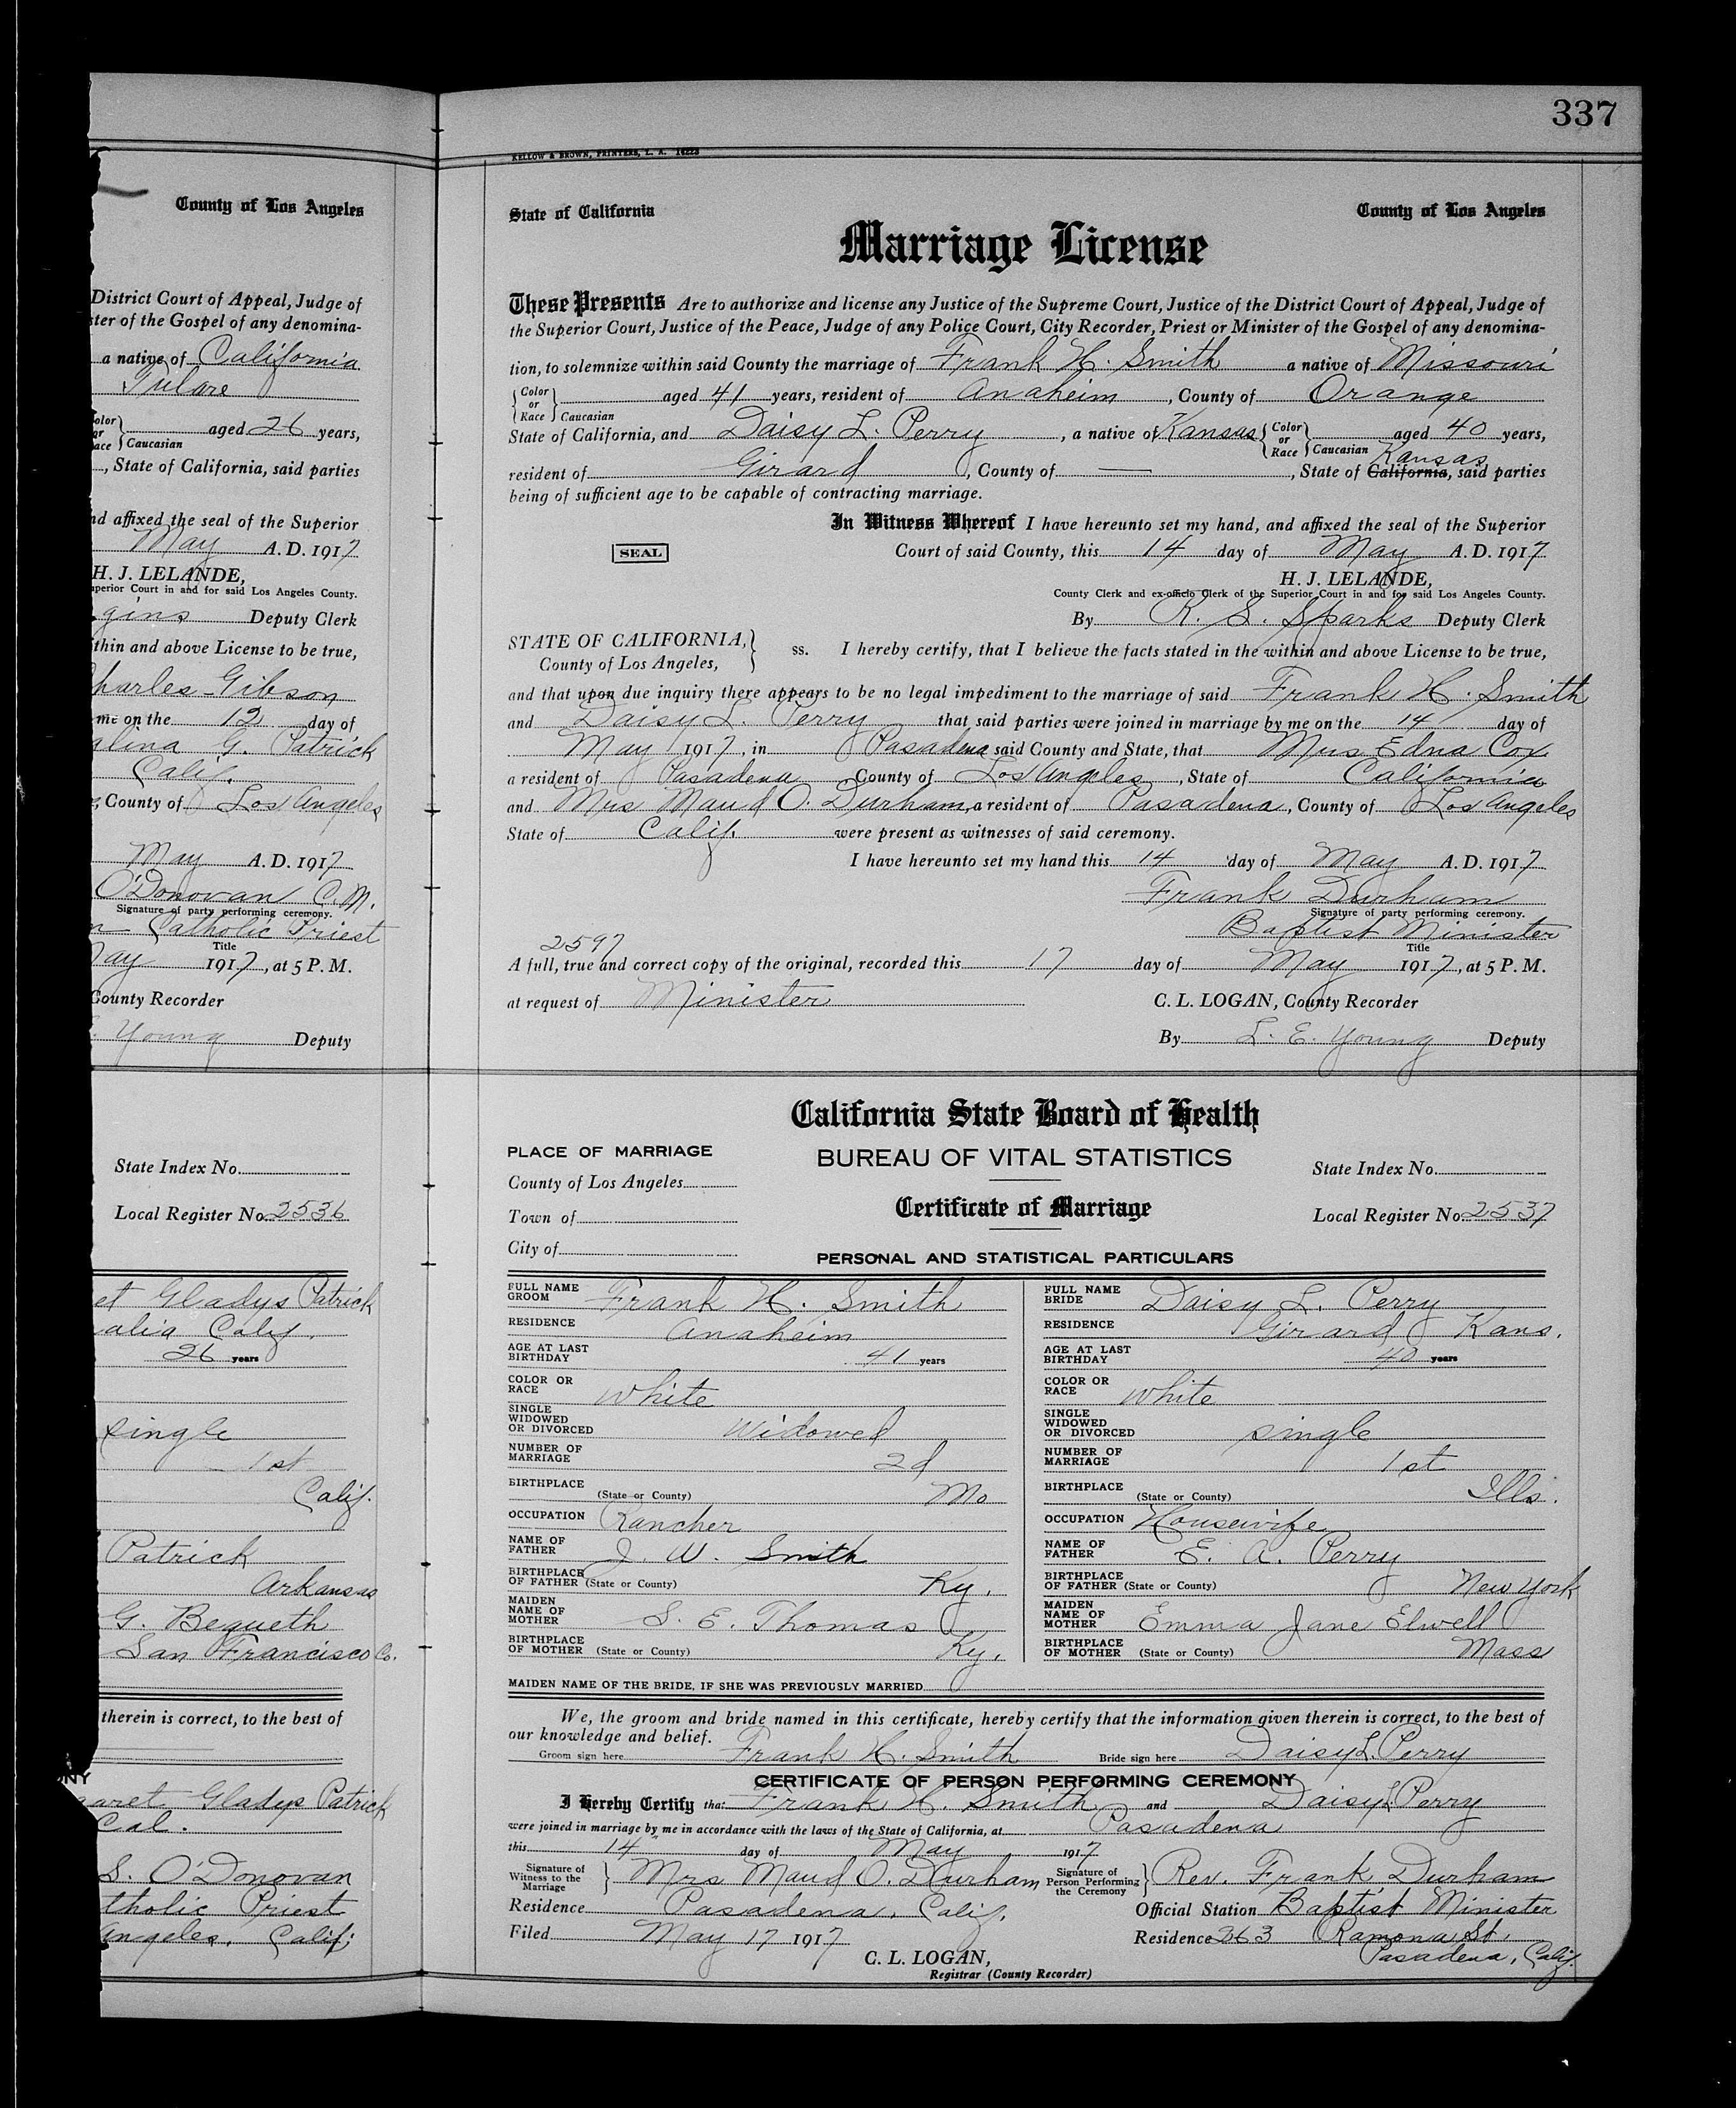 337
KELLOW & BROWN, PRINTERS, L. A. 16223
County of Los Angeles
District Court of Appeal, Judge of
ster of the Gospel of any denomina-
a native of California
Tulare
aged 26 years,
Caucasian
, State of California, said parties
nd affixed the seal of the Superior
May A. D. 1917
H. J. LELANDE,
uperior Court in and for said Los Angeles County.
gins Deputy Clerk
ithin and above License to be true,
harles Gibson
me on the 12 day of
alina G. Patrick
Calif.
County of Los Angeles
May A. D. 1917
O'Donovan C. M.
Signature of party performing ceremony.
n Catholic Priest
Title
May 1917, at 5 P. M.
County Recorder
E. Young Deputy
State Index No.
Local Register No. 2536
et Gladys Patrick
alia Calif.
26 years
single
1st
Calif.
Patrick
Arkansas
G. Bequeth
San Francisco Co.
therein is correct, to the best of
ONY
garet Gladys Patrick
Cal.
S. O'Donovan
tholic Priest
Angeles, Calif.
State of California County of Los Angeles
Marriage License
These Presents Are to authorize and license any Justice of the Supreme Court, Justice of the District Court of Appeal, Judge of
the Superior Court, Justice of the Peace, Judge of any Police Court, City Recorder, Priest or Minister of the Gospel of any denomina-
tion, to solemnize within said County the marriage of Frank H. Smith a native of Missouri
Color or Race Caucasian aged 41 years, resident of Anaheim, County of Orange
State of California, and Daisy L. Perry, a native of Kansas Color or Race Caucasian aged 40 years,
Kansas
resident of Girard, County of —, State of California, said parties
being of sufficient age to be capable of contracting marriage.
In Witness Whereof I have hereunto set my hand, and affixed the seal of the Superior
SEAL Court of said County, this 14 day of May A. D. 1917
H. J. LELANDE,
County Clerk and ex-officio Clerk of the Superior Court in and for said Los Angeles County.
By R. S. Sparks Deputy Clerk
STATE OF CALIFORNIA,
County of Los Angeles,
ss. I hereby certify, that I believe the facts stated in the within and above License to be true,
and that upon due inquiry there appears to be no legal impediment to the marriage of said Frank H. Smith
and Daisy L. Perry that said parties were joined in marriage by me on the 14 day of
May 1917, in Pasadena said County and State, that Mrs Edna Cox
a resident of Pasadena County of Los Angeles, State of California
and Mrs Maud O. Durham, a resident of Pasadena, County of Los Angeles
State of Calif. were present as witnesses of said ceremony.
I have hereunto set my hand this 14 day of May A. D. 1917
Frank Durham
Signature of party performing ceremony.
Baptist Minister
Title
2597
A full, true and correct copy of the original, recorded this 17 day of May 1917, at 5 P. M.
at request of Minister C. L. LOGAN, County Recorder
By L. E. Young Deputy
California State Board of Health
PLACE OF MARRIAGE
BUREAU OF VITAL STATISTICS
County of Los Angeles
State Index No.
Town of
Certificate of Marriage
Local Register No. 2537
City of
PERSONAL AND STATISTICAL PARTICULARS
FULL NAME GROOM Frank H. Smith
RESIDENCE Anaheim
AGE AT LAST BIRTHDAY 41 years
COLOR OR RACE White
SINGLE WIDOWED OR DIVORCED Widowed
NUMBER OF MARRIAGE 2d
BIRTHPLACE (State or County) Mo
OCCUPATION Rancher
NAME OF FATHER J. W. Smith
BIRTHPLACE OF FATHER (State or County) Ky.
MAIDEN NAME OF MOTHER S. E. Thomas
BIRTHPLACE OF MOTHER (State or County) Ky.
FULL NAME BRIDE Daisy L. Perry
RESIDENCE Girard Kans.
AGE AT LAST BIRTHDAY 40 years
COLOR OR RACE White
SINGLE WIDOWED OR DIVORCED single
NUMBER OF MARRIAGE 1st
BIRTHPLACE (State or County) Ills.
OCCUPATION Housewife
NAME OF FATHER E. A. Perry
BIRTHPLACE OF FATHER (State or County) New York
MAIDEN NAME OF MOTHER Emma Jane Elwell
BIRTHPLACE OF MOTHER (State or County) Mass
MAIDEN NAME OF THE BRIDE, IF SHE WAS PREVIOUSLY MARRIED
We, the groom and bride named in this certificate, hereby certify that the information given therein is correct, to the best of
our knowledge and belief.
Groom sign here Frank H. Smith Bride sign here Daisy L. Perry
CERTIFICATE OF PERSON PERFORMING CEREMONY
I Hereby Certify that Frank H. Smith and Daisy L. Perry
were joined in marriage by me in accordance with the laws of the State of California, at Pasadena
this 14" day of May 1917
Signature of Witness to the Marriage Mrs Maud O. Durham Signature of Person Performing the Ceremony Rev. Frank Durham
Residence Pasadena, Calif. Official Station Baptist Minister
Filed May 17 1917 Residence 263 Ramona St.
Pasadena, Calif.
C. L. LOGAN,
Registrar (County Recorder)